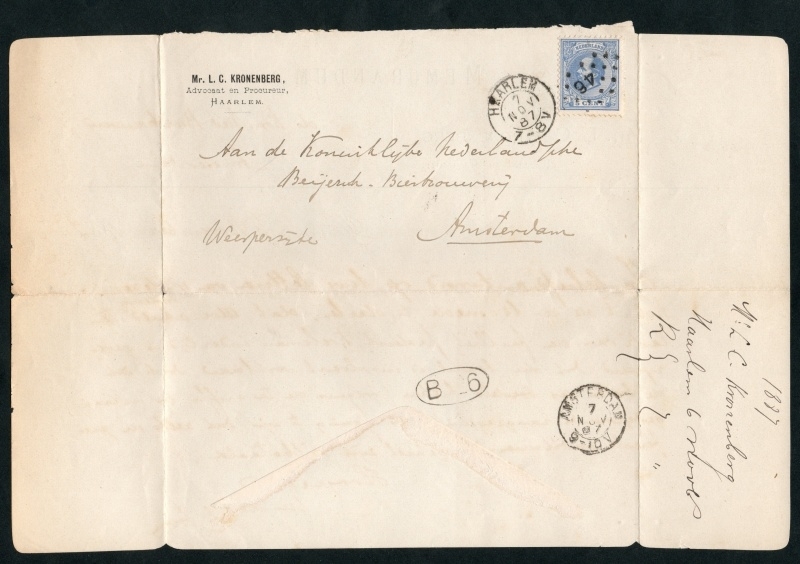 Mr. L. C. KRONENBERG,
Advocaat en Procureur,
HAARLEM.
HAARLEM
7
NOV
87
7-8V
NEDERLAND
46
5 CENT
Aan de Koninklijke Nederlandsche
Beijersch-Bierbrouwerij
Weesperzijde Amsterdam
B 6
AMSTERDAM
7
NOV
87
9-10V
1887
Mr L C. Kronenberg
Haarlem 6 Novbr